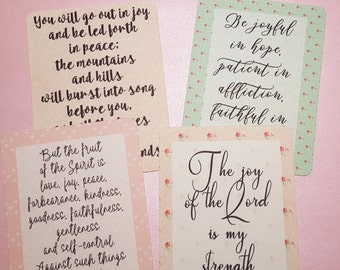 You will go out in joy
and be led forth
in peace;
the mountains
and hills
will burst into song
before you,
Be joyful
in hope,
patient in
affliction,
faithful in
But the fruit
of the Spirit is
love, joy, peace,
forbearance, kindness,
goodness, faithfulness,
gentleness
and self-control.
Against such things
The joy
of the Lord
is my
strength